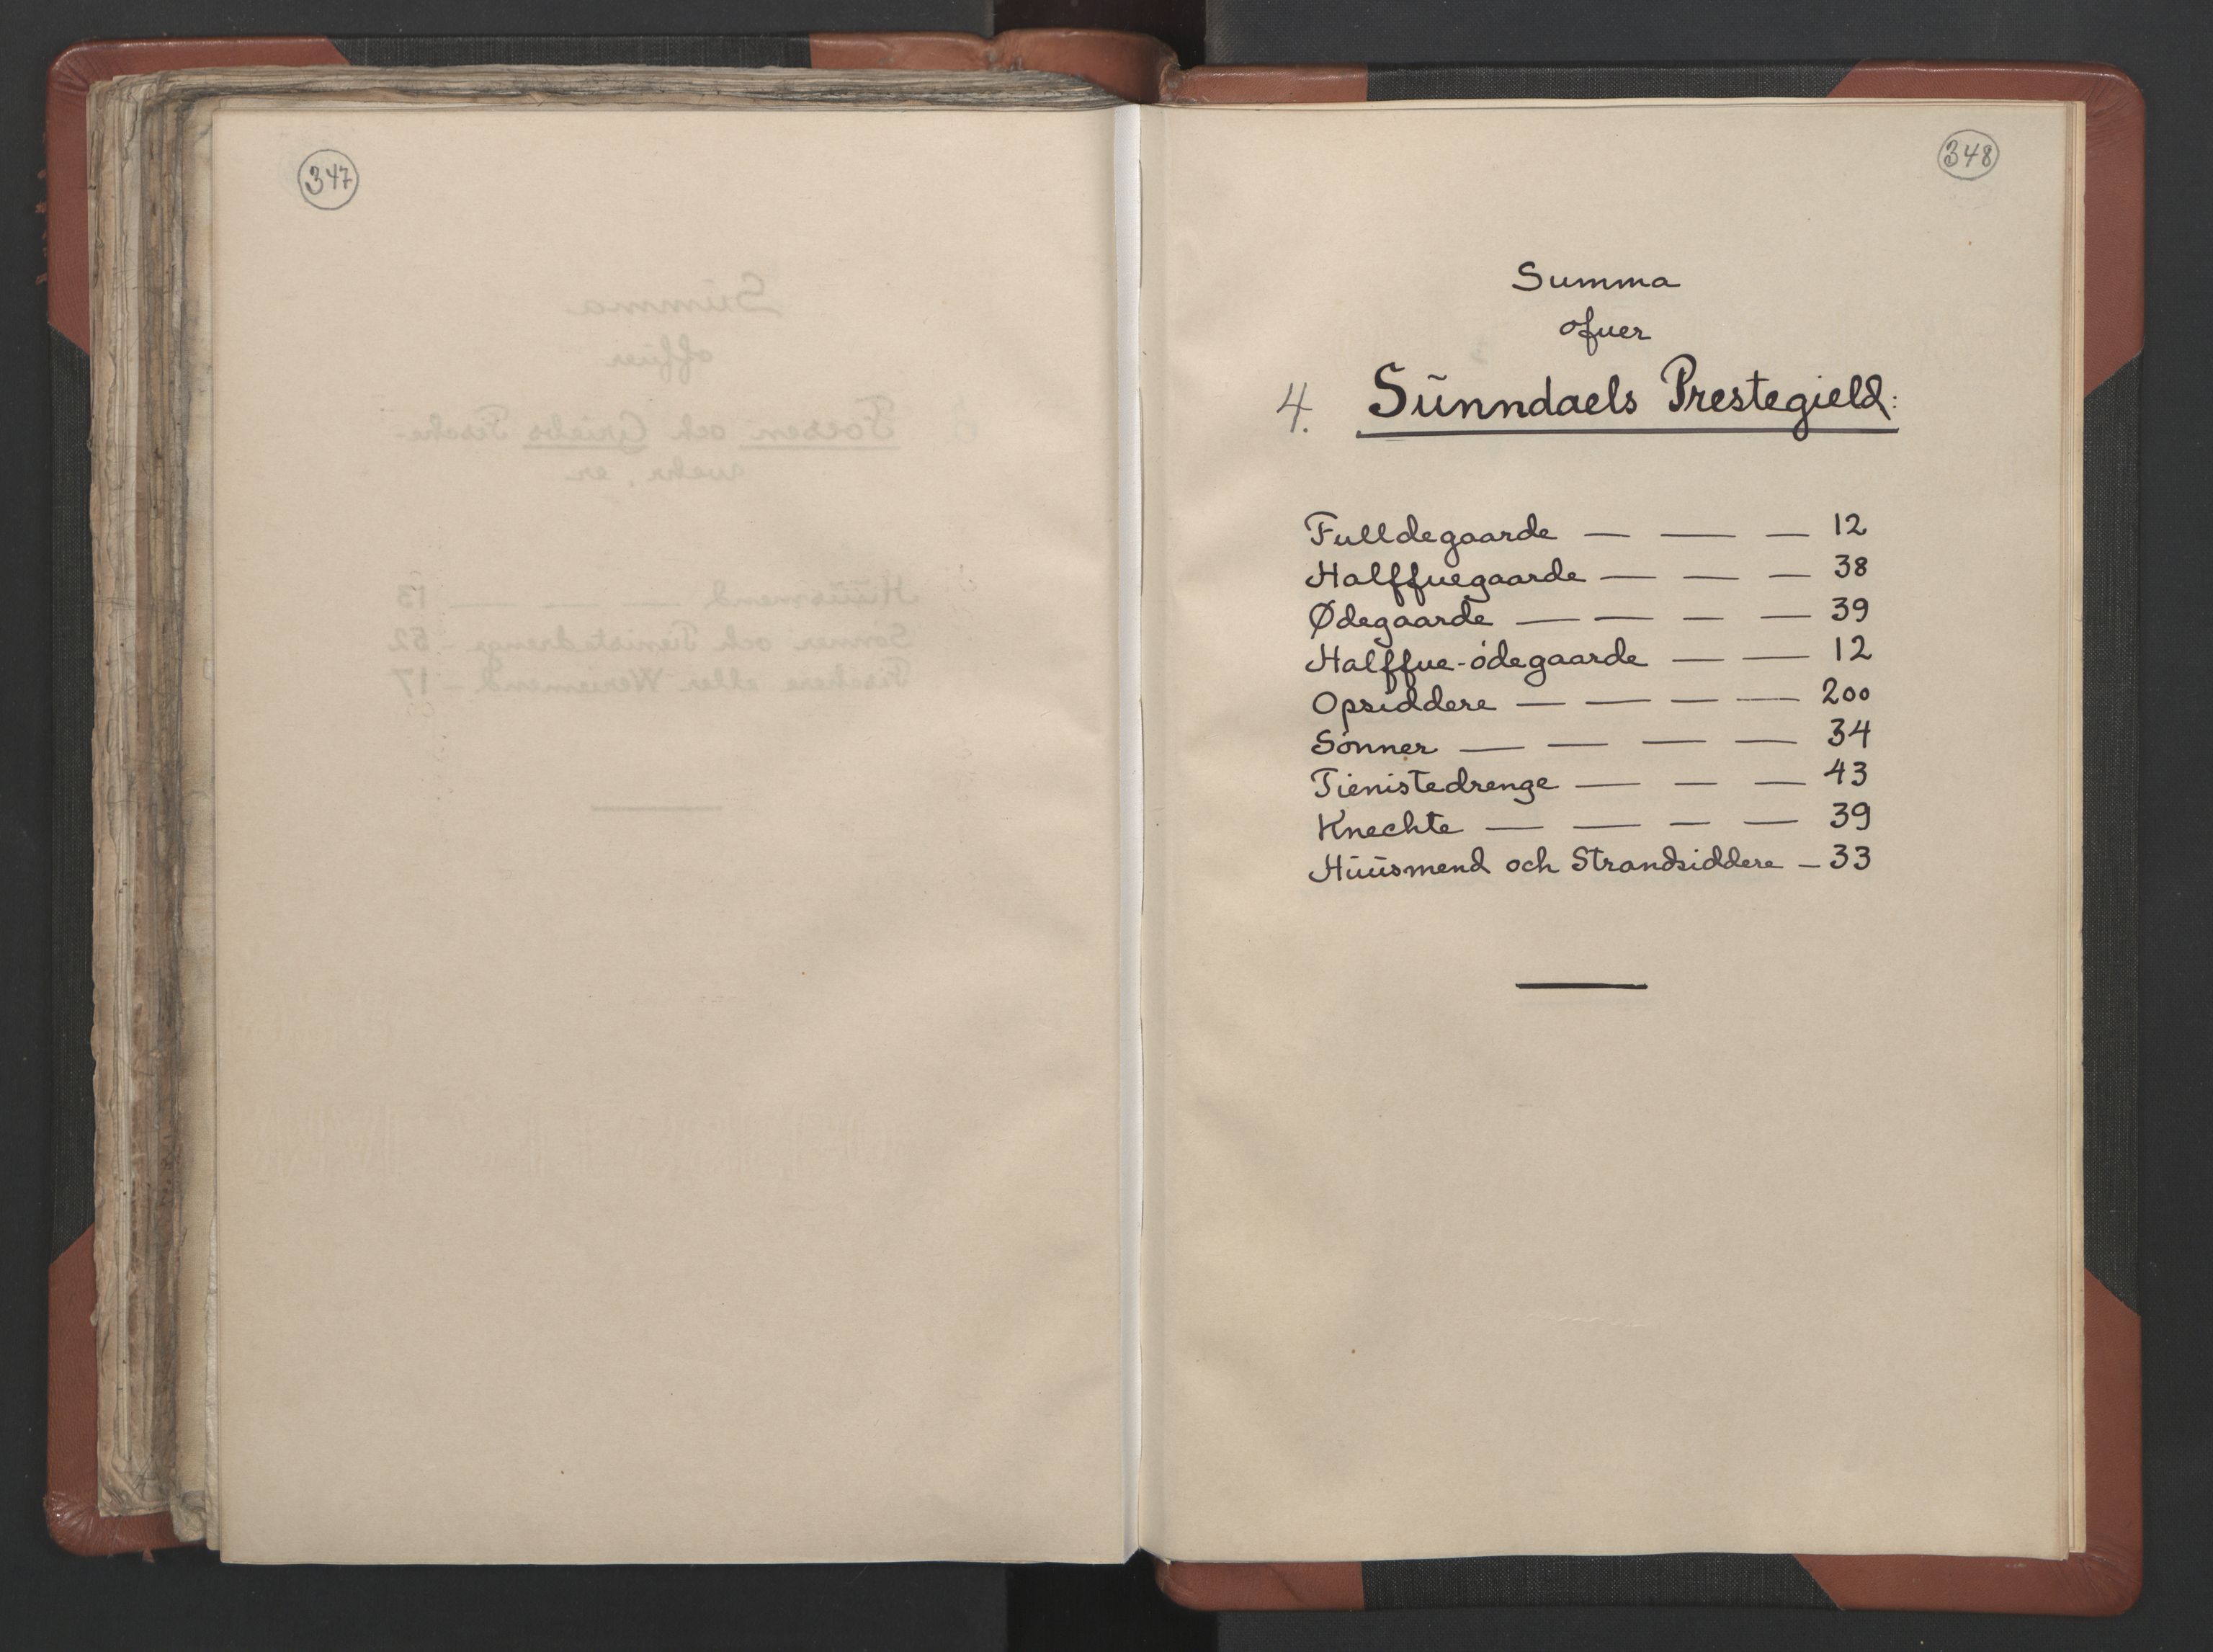 347
348
Summa
ofuer
4. Sünndaels Prestegield:
Fulldegaarde — — — 12
Halffuegaarde — — — 38
Ødegaarde — — — — 39
Halffue-ódegaarde — — 12
Opsiddere — — — — 200
Sónner — — — — 34
Tienistedrenge — — — 43
Knechte — — — — 39
Hüüsmend och Strandsiddere — 33